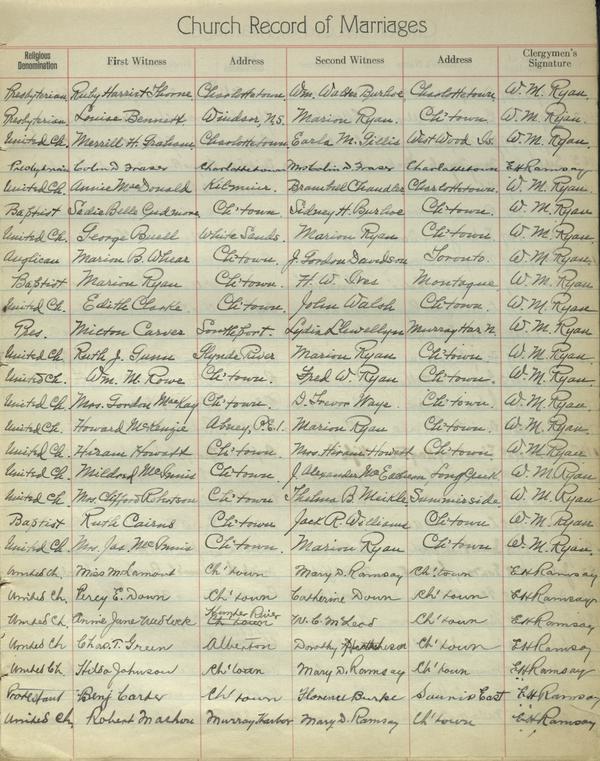 Church Record of Marriages
Religious Denomination First Witness Address Second Witness Address Clergymen's Signature
Presbyterian Ruby Harriet Charlottetown Wm. Walter Burhoe Charlottetown W. M. Ryan.
Presbyterian Louise Bennett Windsor, N.S. Marion Ryan. Ch'town. W. M. Ryan.
United Ch. Merrill H. Graham Charlottetown Earla M. Gillis West Wood W. M. Ryan.
Presbyterian Colin D Fraser Charlottetown Mrs Colin D Fraser Charlottetown E H Ramsay
United Ch. Annie MacDonald Kilmuir. Bramwell Chandler Charlottetown. W. M. Ryan.
Baptist Sadie Belle Ch'town. Sidney H. Burhoe Ch'town. W. M. Ryan.
United Ch. George Buell White Sands. Marion Ryan Ch'town. W. M. Ryan.
Anglican Marion B. Ch'town. J. Gordon Davidson Toronto. W. M. Ryan.
Baptist Marion Ryan Ch'town. H. W. Ives Montague W. M. Ryan
United Ch. Edith Clarke Ch'town. John Walsh Ch'town. W. M. Ryan
Pres. Milton Carver Lydia Llewellyn Murray Har. N. W. M. Ryan
United Ch. Ruth J. Gunn Glynde River Marion Ryan Ch'town W. M. Ryan.
United Ch. Wm. M. Rowe Ch'town. Fred W. Ryan Ch'town. W. M. Ryan.
United Ch. Mrs. Gordon MacKay Ch'town. D. Trevor Ways. Ch'town. W. M. Ryan.
United Ch. Howard McKenzie Abney, P.E.I. Marion Ryan Ch'town. W. M. Ryan.
United Ch. Hiram Howatt Ch'town. Mrs Hiram Howatt Ch'town W. M. Ryan
United Ch. Mildred McInnis Ch'town. J Alexander McEachern Long Creek W. M. Ryan
United Ch. Mrs. Clifford Robertson Ch'town Thelma B. Meikle Summerside W. M. Ryan
Baptist Ruth Cairns Ch'town Jack R. Williams Ch'town W. M. Ryan
United Ch. Mrs. Jas. McInnis Ch'town. Marion Ryan Ch'town. W. M. Ryan.
United Ch. Miss McLamont Ch'town Mary D. Ramsay Ch'town E H Ramsay
United Ch. Percy E. Down Ch'town Catherine Down Ch'town E H Ramsay
United Ch. Annie Jane Ch'town W. C. McLeod Ch'town E H Ramsay
United Ch. Chas. T. Green Alberton Dorothy Ch'town E H Ramsay
United Ch. Hilda Johnson Ch'town Mary D. Ramsay Ch'town E H Ramsay
Protestant Benj Carter Ch'town Florence Burke Souris East E H Ramsay
United Ch. Robert Murray Harbor Mary D. Ramsay Ch'town E H Ramsay